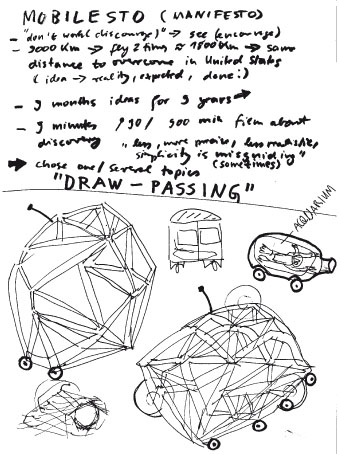 MOBILESTO (MANIFESTO)
- "don't world discourage" → see (encourage)
- 9000 Km → fly 2 times ≈ 1800Km → same
distance to overcome in United States
(idea → reality, expected, done:)
- 9 months ideas for 9 years →
- 9 minutes / 90 / 900 min film about
discovery "less, more precise, less
simplicity is missguiding"
→ chose one/several topics (sometimes)
"DRAW - PASSING"
AQUARIUM